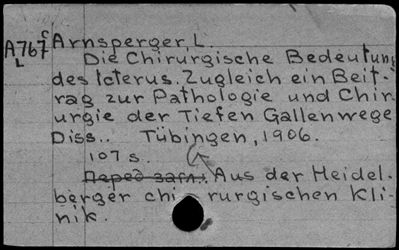 A767 c Arnsperger, L.
L
Die Chirurgische Bedeutung
des Icterus. Zugleich ein Beit-
rag zur Pathologie und Chir-
urgie der Tiefen Gallenwege
Diss.. Tübingen, 1906.
107 s.
Перед загл.: Aus der Heidel-
berger chi rurgischen Kli-
nik.